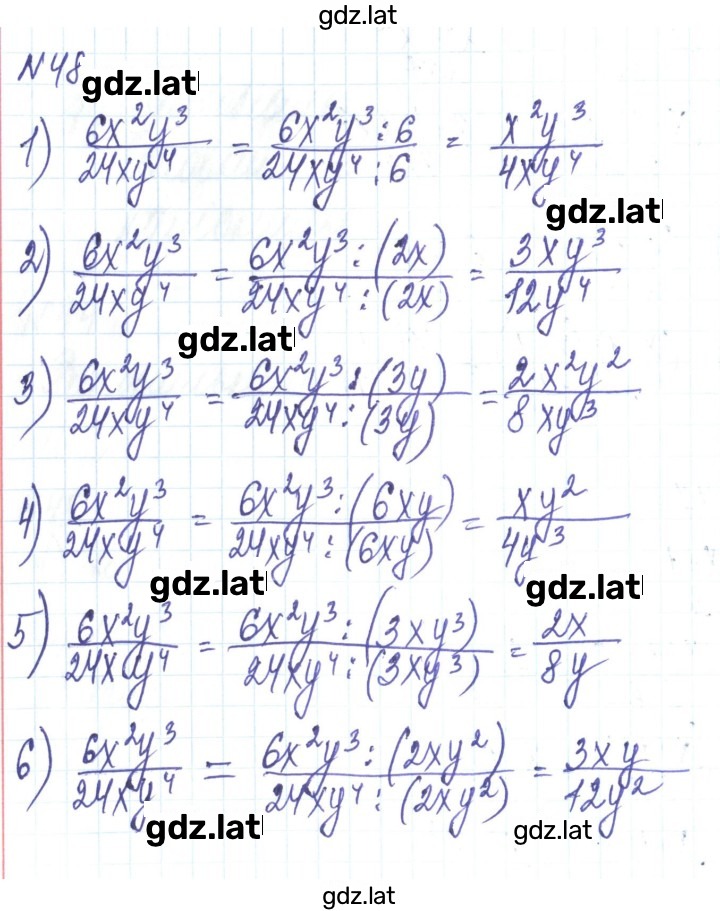 gdz.lat
N48
gdz.lat
1) 6x²y³/24xy⁴ = 6x²y³:6/24xy⁴:6 = x²y³/4xy⁴
gdz.lat
2) 6x²y³/24xy⁴ = 6x²y³:(2x)/24xy⁴:(2x) = 3xy³/12y⁴
gdz.lat
3) 6x²y³/24xy⁴ = 6x²y³:(3y)/24xy⁴:(3y) = 2x²y²/8xy³
4) 6x²y³/24xy⁴ = 6x²y³:(6xy)/24xy⁴:(6xy) = xy²/4y³
gdz.lat gdz.lat
5) 6x²y³/24xy⁴ = 6x²y³:(3xy³)/24xy⁴:(3xy³) = 2x/8y
6) 6x²y³/24xy⁴ = 6x²y³:(2xy²)/24xy⁴:(2xy²) = 3xy/12y²
gdz.lat gdz.lat
gdz.lat